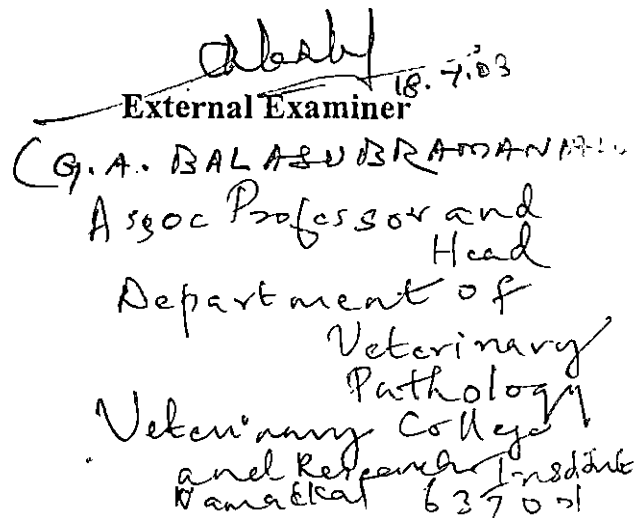 18.7.03
External Examiner
(G.A. BALASUBRAMANIAN
Assoc Professor and
Head
Department of
Veterinary
Pathology
Veterinary College
and Research Institute
Namakkal 637001